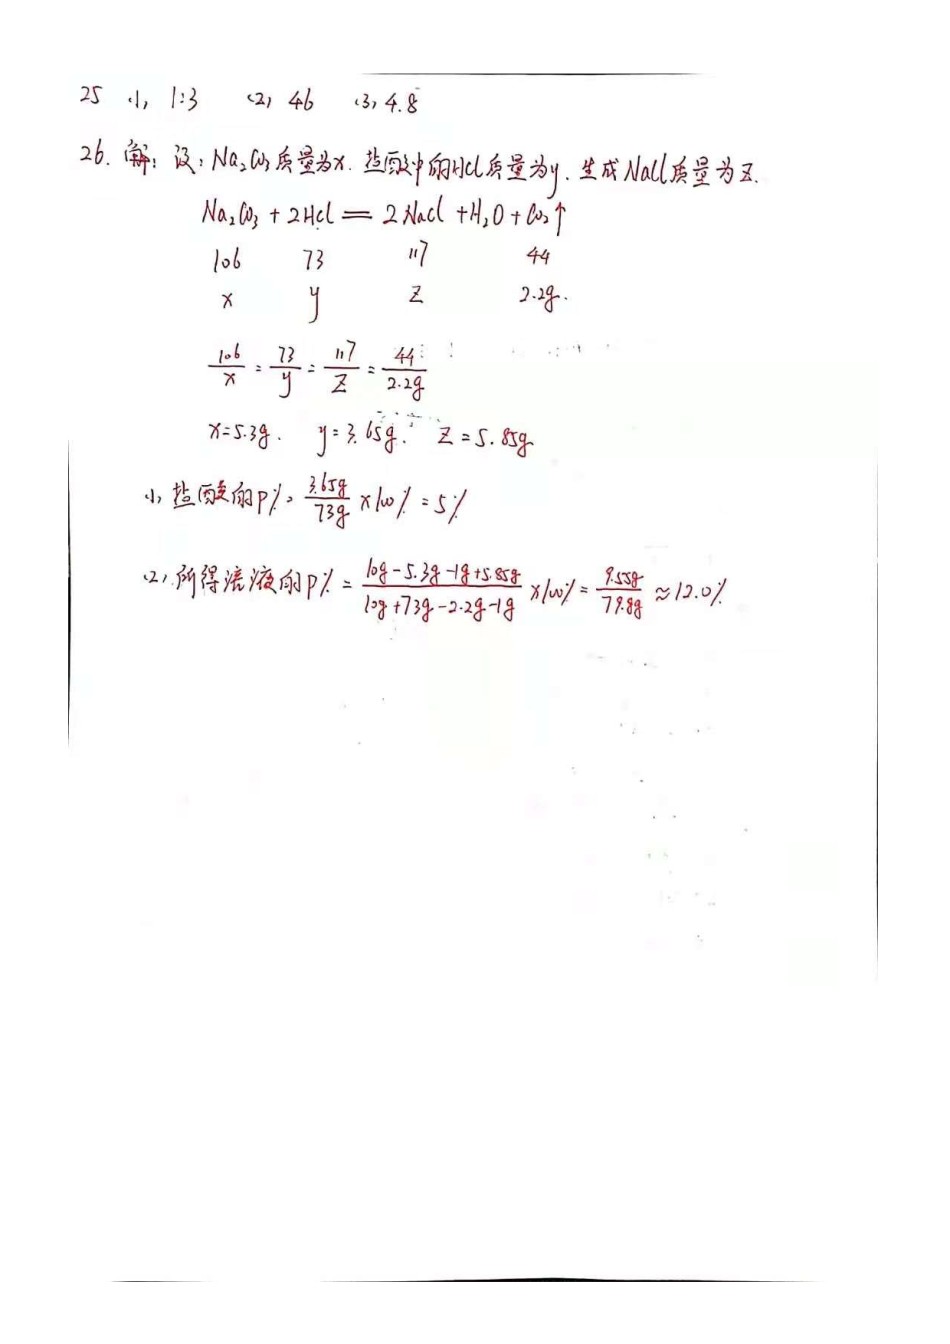 25 (1) 1:3 (2) 46 (3) 4.8
26. 解: 设: Na₂CO₃质量为x. 盐酸中的HCl质量为y. 生成NaCl质量为z.
Na₂CO₃ + 2HCl = 2NaCl + H₂O + CO₂↑
106 73 117 44
x y z 2.2g.
106/x = 73/y = 117/z = 44/2.2g
x=5.3g. y=3.65g. z=5.85g
(1) 盐酸的P% = 3.65g/73g ×100% = 5%
(2) 所得溶液的P% = 10g-5.3g-1g+5.85g/10g+73g-2.2g-1g ×100% = 9.55g/79.8g ≈12.0%